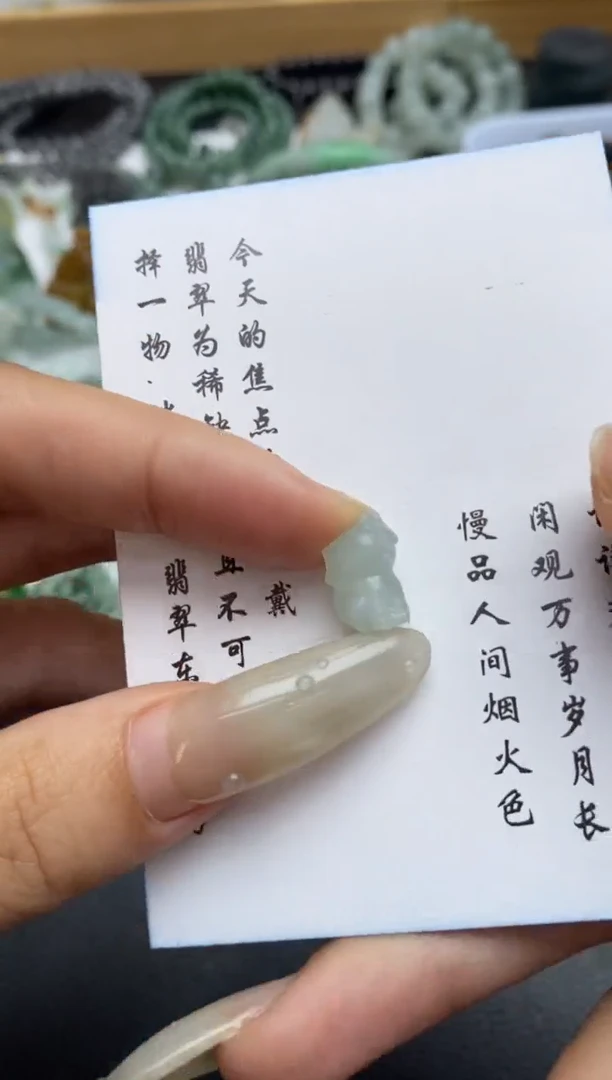 闲观万事岁月长
慢品人间烟火色
今天的焦点 戴
翡翠为稀 不可
择一物· 翡翠东